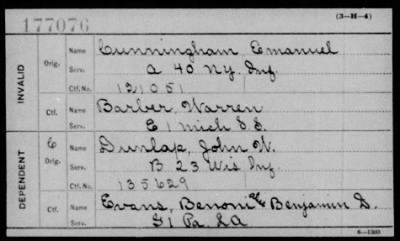 177076
(3-H-4)
INVALID
Orig.
Name Cunningham Emanuel
Serv. A 40 N.Y. Inf.
Ctf. No. 121051
Ctf.
Name Barber, Warren
Serv. E 1 Mich S.S.
DEPENDENT
C
Orig.
Name Dunlap, John W.
Serv. B 23 Wis Inf.
Ctf. No. 135629
Ctf.
Name Evans, Benoni or Benjamin D.
Serv. G 1 Pa. L A
6-1303